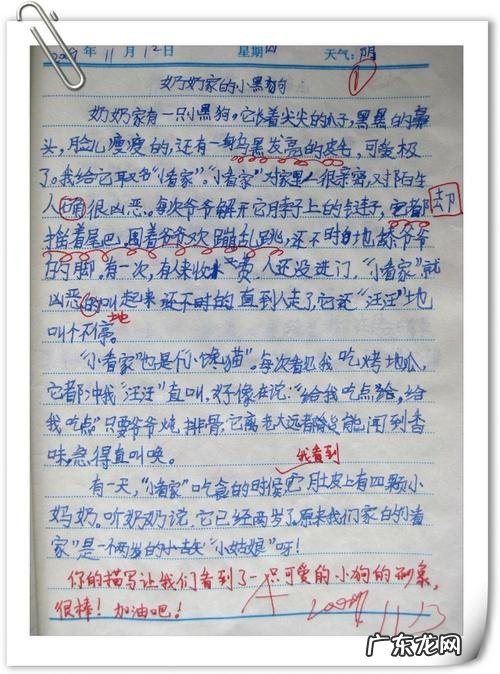 2009年11月12日 星期四 天气:阴
①
奶奶家的小黑狗
奶奶家有一只小黑狗。它长着尖尖的爪子,黑黑的鼻
头,脸儿瘦瘦的,还有一身乌黑发亮的皮毛,可爱极
了。我给它取名"小看家"。"小看家"对家里人很亲密,对陌生
人 很凶恶。每次爷爷解开它脖子上的链子,它都
却
摇着尾巴,围着爷爷欢蹦乱跳,还不时地舔爷爷
的脚。有一次,有人来收 费,人还没进门,"小看家"就
凶恶的叫起来还不时的直到人走了,它还"汪汪"地
地
叫个不停。
"小看家"也是个"小馋猫"。每次看见我吃烤地瓜,
它都冲我"汪汪"直叫,好像在说:"给我吃点给,给
我吃点"只要爷爷炖排骨,它离老大远都 能闻到香
味,急得直叫唤。
我看到
有一天,"小看家"吃食的时候它肚皮上有四颗小
妈奶。听奶奶说,它已经两岁了。原来我们家的"小看
家"是一个两岁的 "小姑娘"呀!
你的描写让我们看到了一只可爱的小狗的形象,
很棒!加油吧!
A
11.13
广东龙网